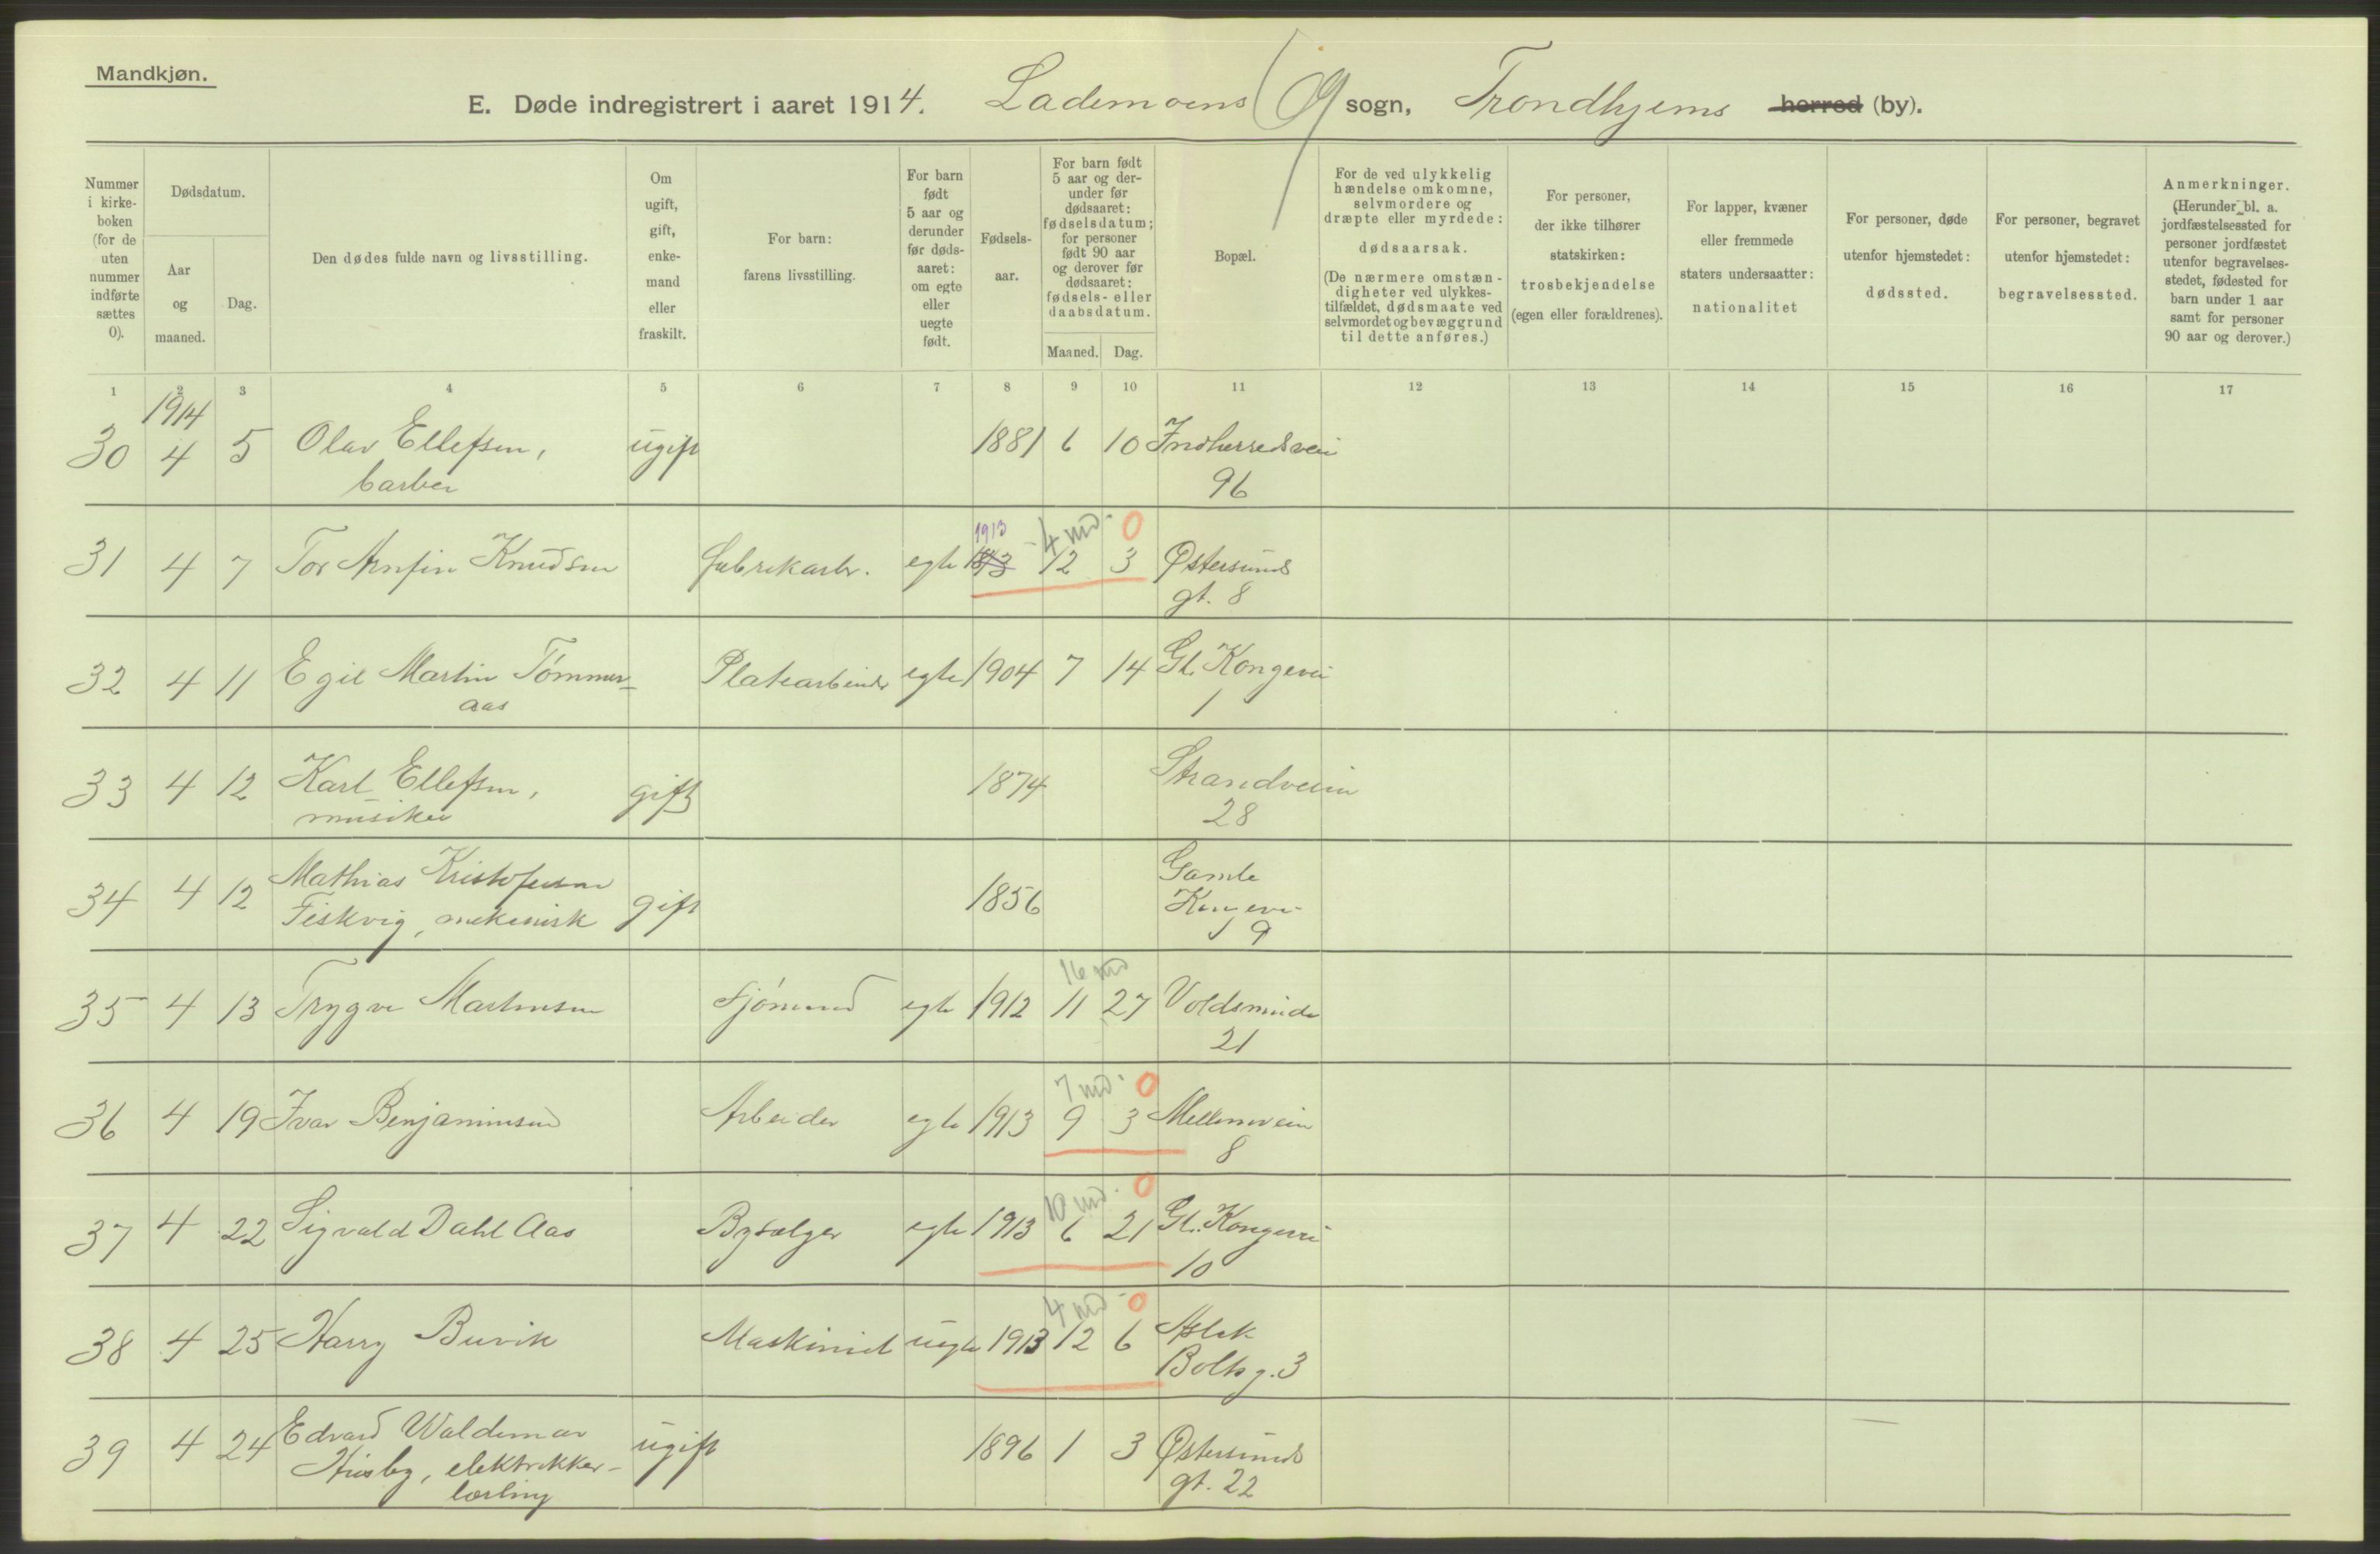 Mandkjøn.
E. Døde indregistrert i aaret 1914. Lademoens 9 sogn, Trondhjems herred (by).
Nummer i kirke-boken (for de uten nummer indførte sættes 0).
Dødsdatum.
Aar og maaned.
Dag.
Den dødes fulde navn og livsstilling.
Om ugift, gift, enke-mand eller fraskilt.
For barn: farens livsstilling.
For barn født 5 aar og derunder før døds-aaret: om egte eller uegte født.
Fødsels-aar.
For barn født 5 aar og der-under før dødsaaret: fødselsdatum; for personer født 90 aar og derover før dødsaaret: fødsels- eller daabsdatum.
Maaned. Dag.
Bopæl.
For de ved ulykkelig hændelse omkomne, selvmordere og dræpte eller myrdede: dødsaarsak. (De nærmere omstæn-digheter ved ulykkes-tilfældet, dødsmaate ved selvmordet og bevæggrund til dette anføres.)
For personer, der ikke tilhører statskirken: trosbekjendelse (egen eller forældrenes).
For lapper, kvæner eller fremmede staters undersaatter: nationalitet
For personer, døde utenfor hjemstedet: dødssted.
For personer, begravet utenfor hjemstedet: begravelsessted.
Anmerkninger. (Herunder bl. a. jordfæstelsessted for personer jordfæstet utenfor begravelses-stedet, fødested for barn under 1 aar samt for personer 90 aar og derover.)
1 2 3 4 5 6 7 8 9 10 11 12 13 14 15 16 17
1914
30 4 5 Olav Ellefsen, ugift 1881 6 10 Indherredsvei
barber 96
1913 4 md. 0
31 4 7 Tor Arnfin Knudsen fabrikarb. egte 12 3 Østersunds
gt. 8
32 4 11 Egil Martin Tømmer- Platearbeider egte 1904 7 14 Gl. Kongevei
aas 1
33 4 12 Karl Ellefsen, gift 1874 Strandveien
musiker 28
34 4 12 Mathias Kristofersen gift 1856 Gamle
Fiskvig, mekanisk Kongevei
9
16 md
35 4 13 Trygve Martinsen Sjømand egte 1912 11 27 Voldsminde
21
7 md. 0
36 4 19 Ivar Benjaminsen Arbeider egte 1913 9 3 Mellemveien
8
10 md. 0
37 4 22 Sigvald Dahl Aas Bysælger egte 1913 6 21 Gl. Kongevei
10
4 md 0
38 4 25 Harry Buvik Maskinist uegte 1913 12 6 Aslak
Bolts g. 3
39 4 24 Edvard Waldemar ugift 1896 1 3 Østersunds
Husby, elektrikker- gt. 22
lærling